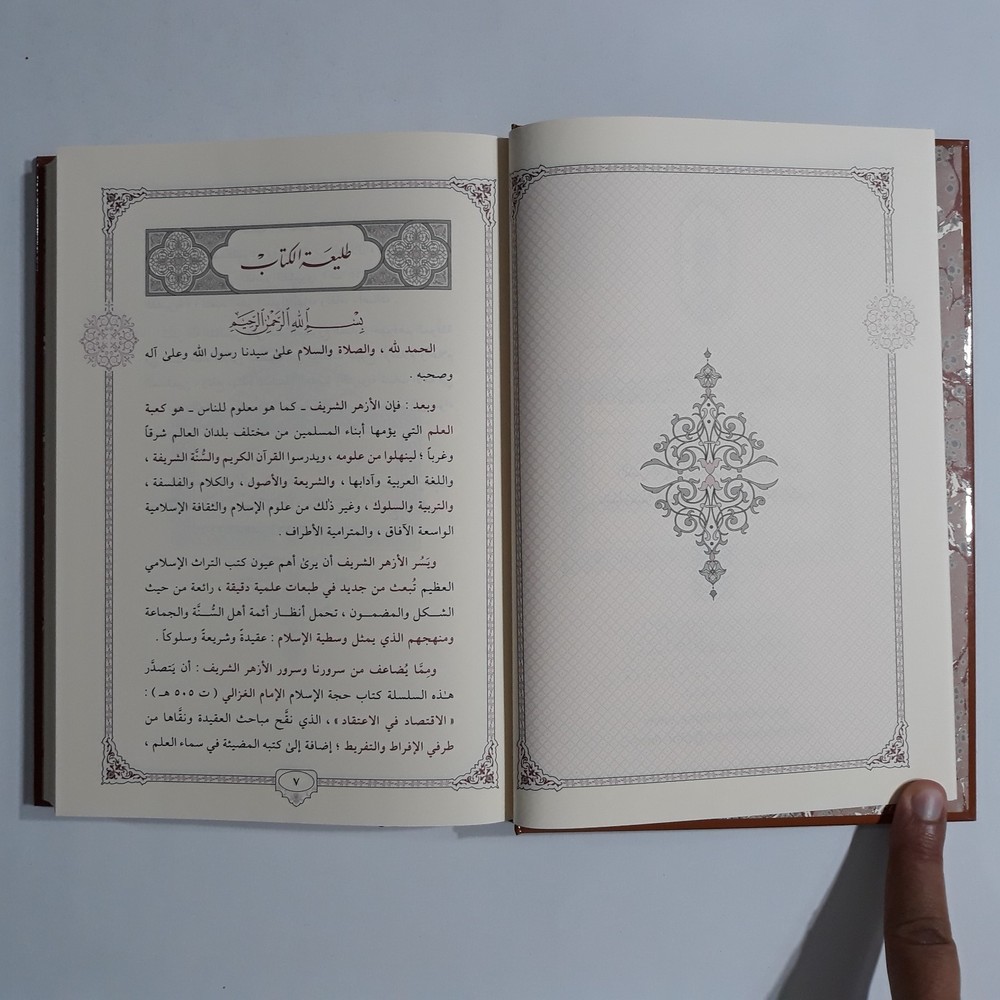 طليعة الكتاب
بِسْمِ ٱللهِ ٱلرَّحْمٰنِ ٱلرَّحِيمِ
الحمد لله ، والصلاة والسلام علىٰ سيدنا رسول الله وعلىٰ آله
وصحبه .
وبعد : فإن الأزهر الشريف ـ كما هو معلوم للناس ـ هو كعبة
العلم التي يؤمها أبناء المسلمين من مختلف بلدان العالم شرقاً
وغرباً ؛ لينهلوا من علومه ، ويدرسوا القرآن الكريم والسُّنَّة الشريفة ،
واللغة العربية وآدابها ، والشريعة والأصول ، والكلام والفلسفة ،
والتربية والسلوك ، وغير ذٰلك من علوم الإسلام والثقافة الإسلامية
الواسعة الآفاق ، والمترامية الأطراف .
ويَسُر الأزهر الشريف أن يرىٰ أهم عيون كتب التراث الإسلامي
العظيم تُبعث من جديد في طبعات علمية دقيقة ، رائعة من حيث
الشكل والمضمون ، تحمل أنظار أئمة أهل السُّنَّة والجماعة
ومنهجهم الذي يمثل وسطية الإسلام : عقيدةً وشريعةً وسلوكاً .
ومِمَّا يُضاعف من سرورنا وسرور الأزهر الشريف : أن يَتصدَّر
هـٰذه السلسلة كتاب حجة الإسلام الإمام الغزالي ( ت ٥٠٥ هـ ) :
« الاقتصاد في الاعتقاد » ، الذي نقَّح مباحث العقيدة ونقَّاها من
طرفي الإفراط والتفريط ؛ إضافة إلىٰ كتبه المضيئة في سماء العلم ،
٧